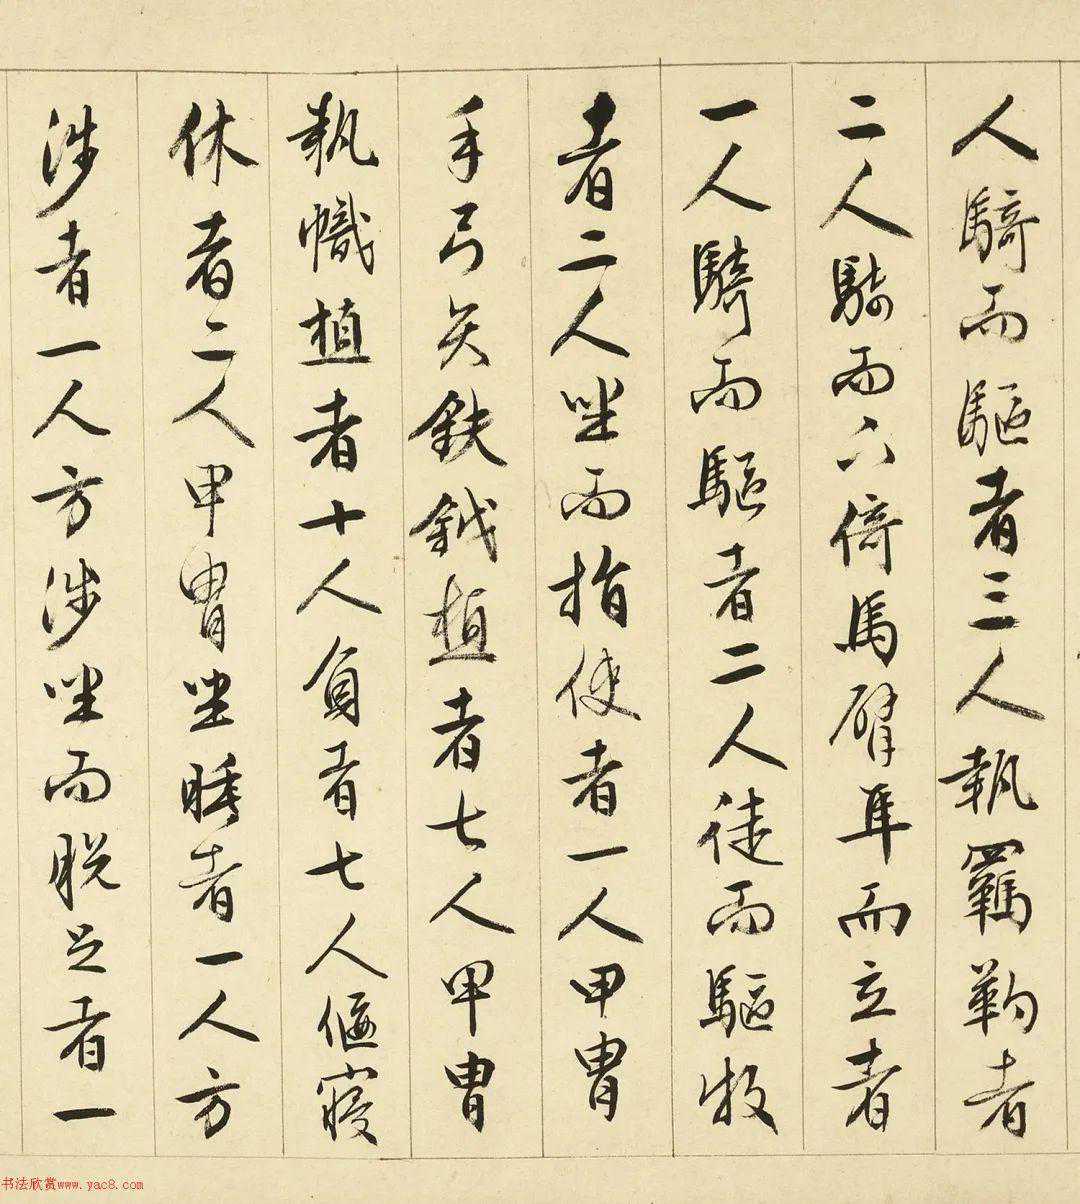 人騎而驅者三人執羈靮者
二人騎而下倚馬臂隼而立者
一人騎而驅者二人徒而驅牧
者二人坐而指使者一人甲冑
手弓矢鈇鉞植者七人甲冑
執幟植者十人負者七人偃寢
休者二人甲冑坐睡者一人方
涉者一人方涉坐而脫足者一
书法欣赏www.yac8.com